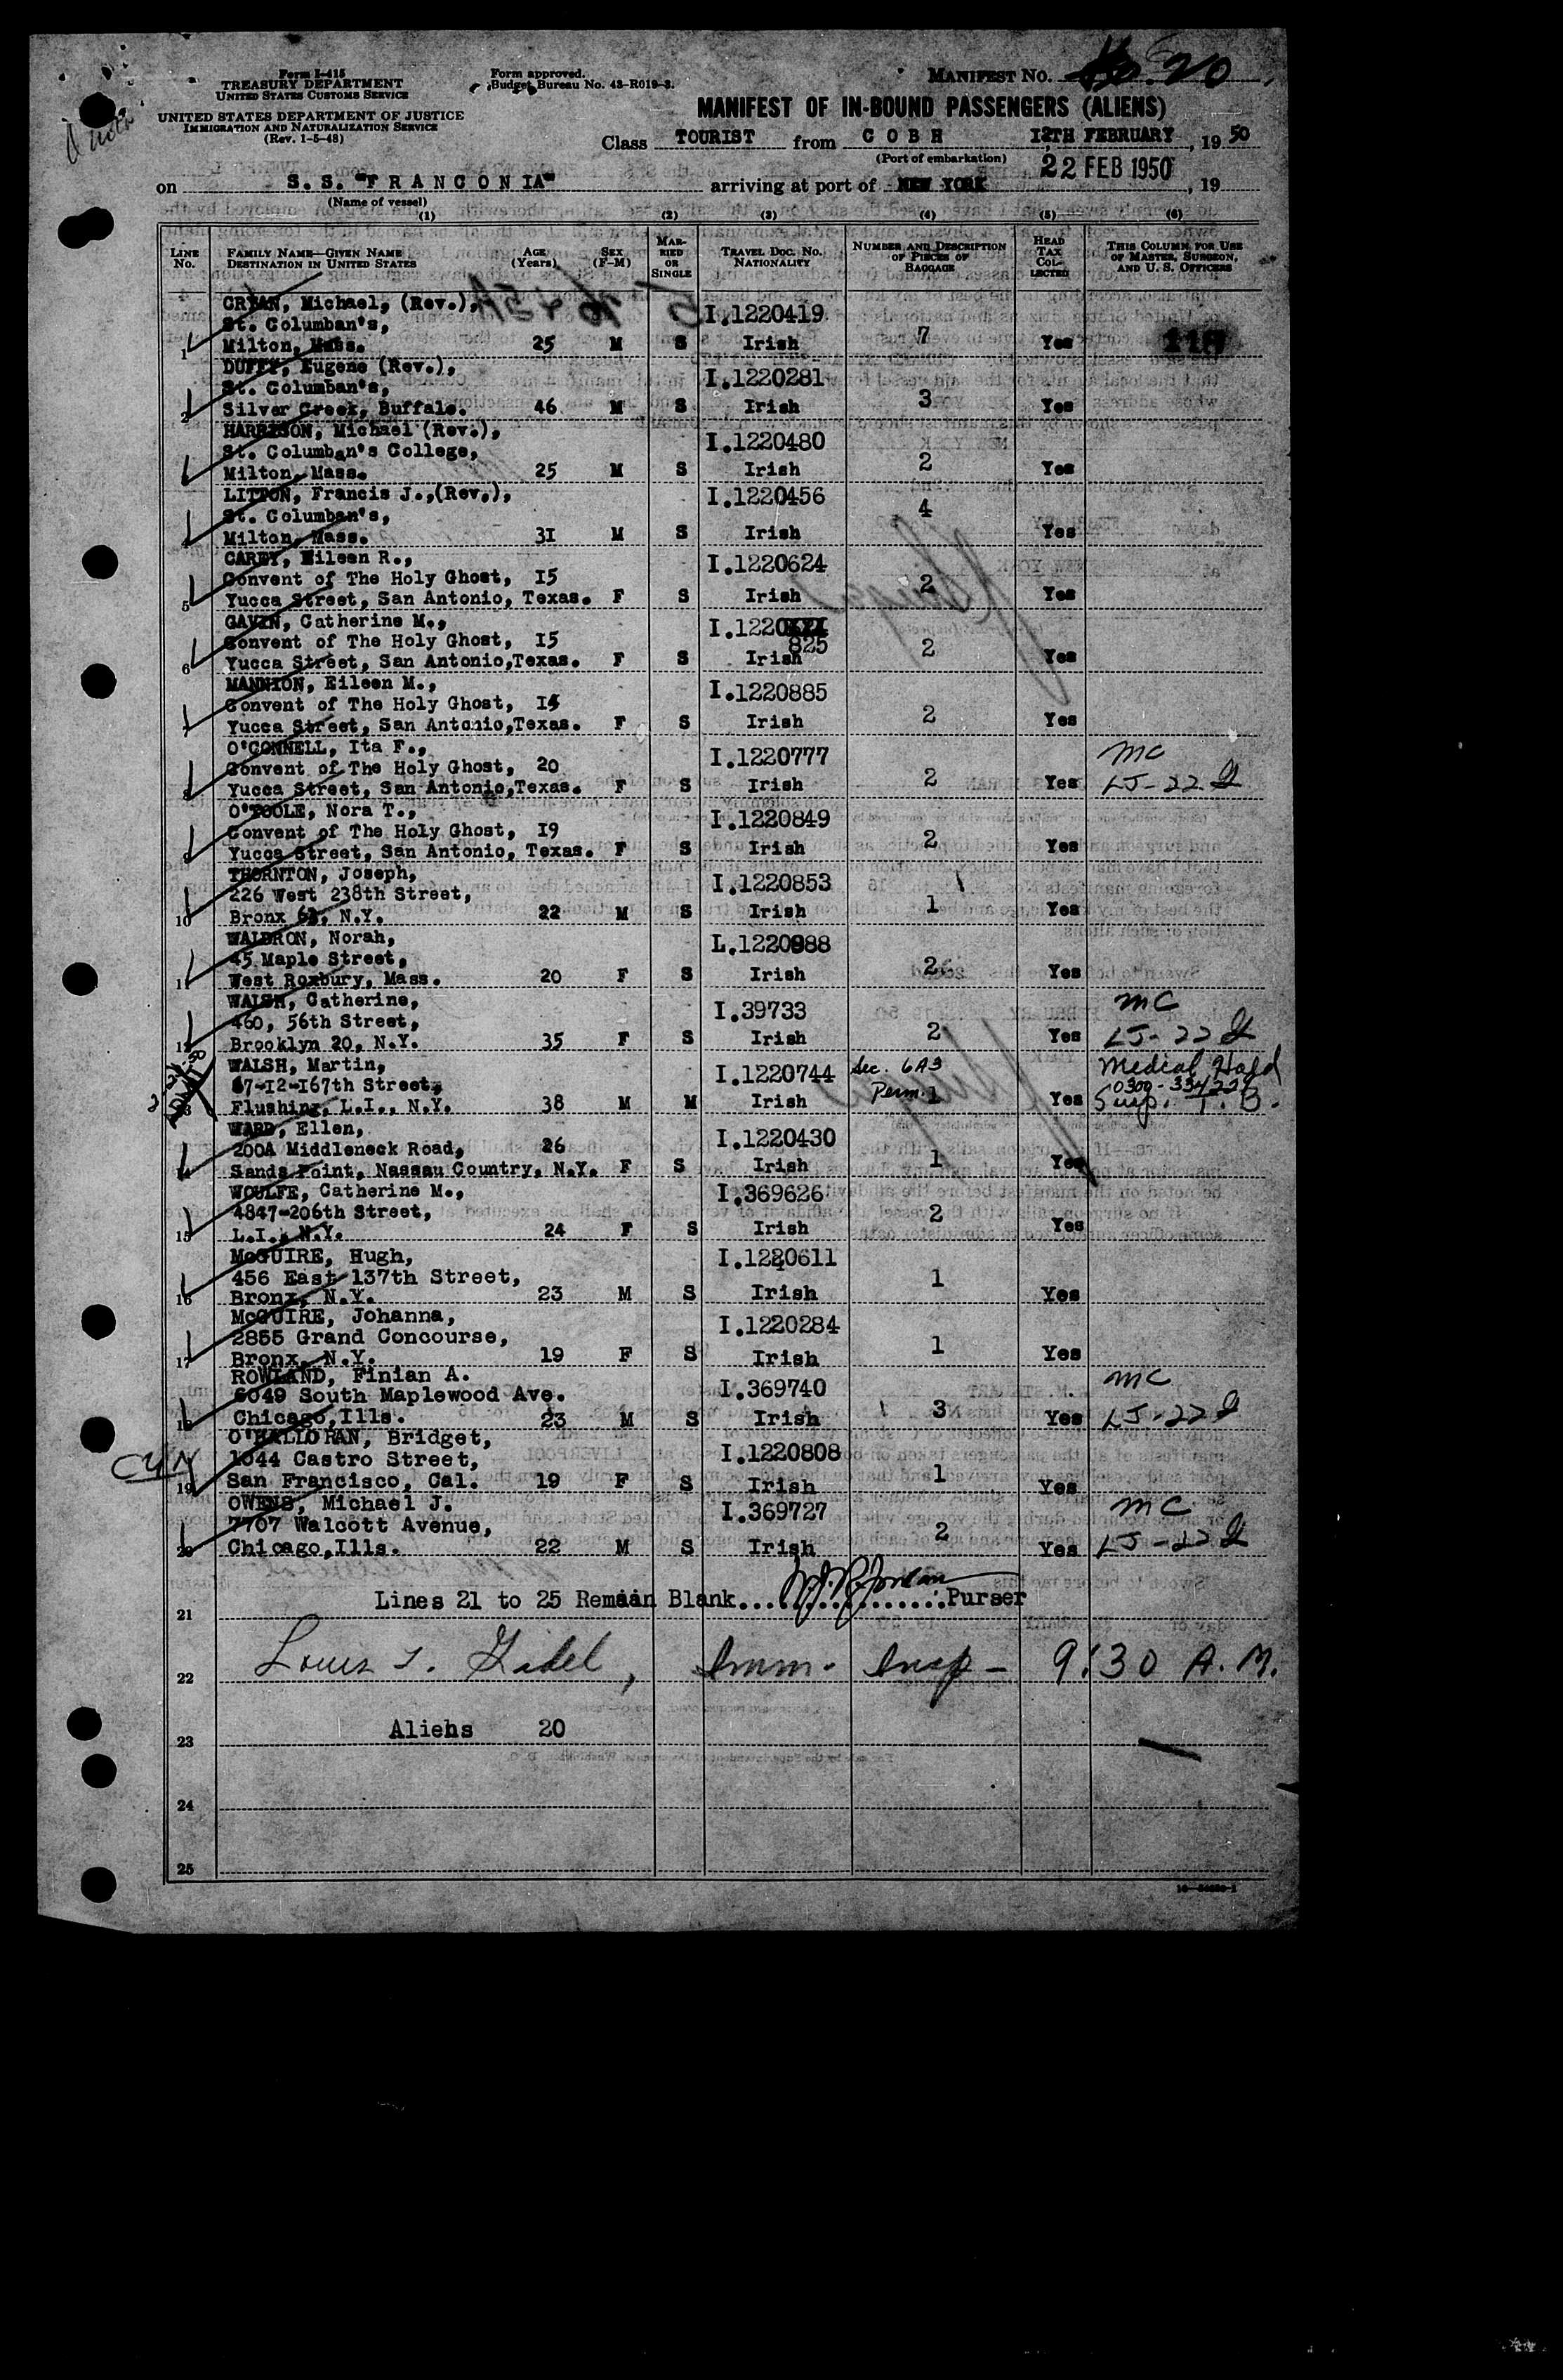 Form I-415
TREASURY DEPARTMENT
UNITED STATES CUSTOMS SERVICE
UNITED STATES DEPARTMENT OF JUSTICE
IMMIGRATION AND NATURALIZATION SERVICE
(Rev. 1-5-48)
Form approved.
Budget Bureau No. 43-R019-3.
MANIFEST NO. 20
MANIFEST OF IN-BOUND PASSENGERS (ALIENS)
Class TOURIST from C O B H 12TH FEBRUARY, 19 50
(Port of embarkation)
22 FEB 1950
on S. S. "F R A N C O N I A" arriving at port of NEW YORK, 19
(Name of vessel)
(1) (2) (3) (4) (5) (6)
LINE No. FAMILY NAME—GIVEN NAME DESTINATION IN UNITED STATES AGE (Years) SEX (F-M) MARRIED OR SINGLE TRAVEL DOC. NO. NATIONALITY NUMBER AND DESCRIPTION OF PIECES OF BAGGAGE HEAD TAX COLLECTED THIS COLUMN FOR USE OF MASTER, SURGEON, AND U. S. OFFICERS
CRYAN, Michael, (Rev.), I.1220419
St. Columban's,
1 Milton, Mass. 25 M S Irish 7 Yes
DUFFY, Eugene (Rev.), I.1220281
St. Columban's,
2 Silver Creek, Buffalo. 46 M S Irish 3 Yes
HARRISON, Michael (Rev.), I.1220480
St. Columban's College,
Milton, Mass. 25 M S Irish 2 Yes
LITTON, Francis J.,(Rev.), I.1220456
St. Columban's,
4 Milton, Mass. 31 M S Irish 4 Yes
CAREY, Eileen R., I.1220624
Convent of The Holy Ghost, 15
5 Yucca Street, San Antonio, Texas. F S Irish 2 Yes
GAVIN, Catherine M., I.1220
825
Convent of The Holy Ghost, 15
6 Yucca Street, San Antonio,Texas. F S Irish 2 Yes
MANNION, Eileen M., I.1220885
Convent of The Holy Ghost, 15
7 Yucca Street, San Antonio,Texas. F S Irish 2 Yes
O'CONNELL, Ita F., I.1220777 MC
Convent of The Holy Ghost, 20
8 Yucca Street, San Antonio,Texas. F S Irish 2 Yes LJ-22
O'TOOLE, Nora T., I.1220849
Convent of The Holy Ghost, 19
9 Yucca Street, San Antonio, Texas. F S Irish 2 Yes
THORNTON, Joseph, I.1220853
226 West 238th Street,
10 Bronx 63, N.Y. 22 M S Irish 1 Yes
WALDRON, Norah, L.1220988
45 Maple Street,
11 West Roxbury, Mass. 20 F S Irish 2 Yes
WALSH, Catherine, I.39733 MC
460, 56th Street,
12 Brooklyn 20, N.Y. 35 F S Irish 2 Yes LJ-22
WALSH, Martin, I.1220744 Sec. 6A3 Medical Hold
67-12-167th Street, 0300-334227
13 Flushing, L.I., N.Y. 38 M M Irish Perm. 1 Yes Susp. T. B.
WARD, Ellen, I.1220430
200A Middleneck Road, 26
Sands Point, Nassau Country, N.Y. F S Irish 1 Yes
WOULFE, Catherine M., I.369626
4847-206th Street,
15 L.I., N.Y. 24 F S Irish 2 Yes
McGUIRE, Hugh, I.1220611
456 East 137th Street,
16 Bronx, N.Y. 23 M S Irish 1 Yes
McGUIRE, Johanna, I.1220284
2855 Grand Concourse,
17 Bronx, N.Y. 19 F S Irish 1 Yes
ROWLAND, Finian A. I.369740 MC
6049 South Maplewood Ave.
18 Chicago,Ills. 23 M S Irish 3 Yes LJ-22
O'HALLORAN, Bridget, I.1220808
1044 Castro Street,
19 San Francisco, Cal. 19 F S Irish 1 Yes
OWENS, Michael J. I.369727 MC
7707 Walcott Avenue,
20 Chicago,Ills. 22 M S Irish 2 Yes LJ-22
Lines 21 to 25 Remain Blank...................Purser
21
22 Louis Imm. Insp - 9:30 A.M.
23 Aliens 20
24
25